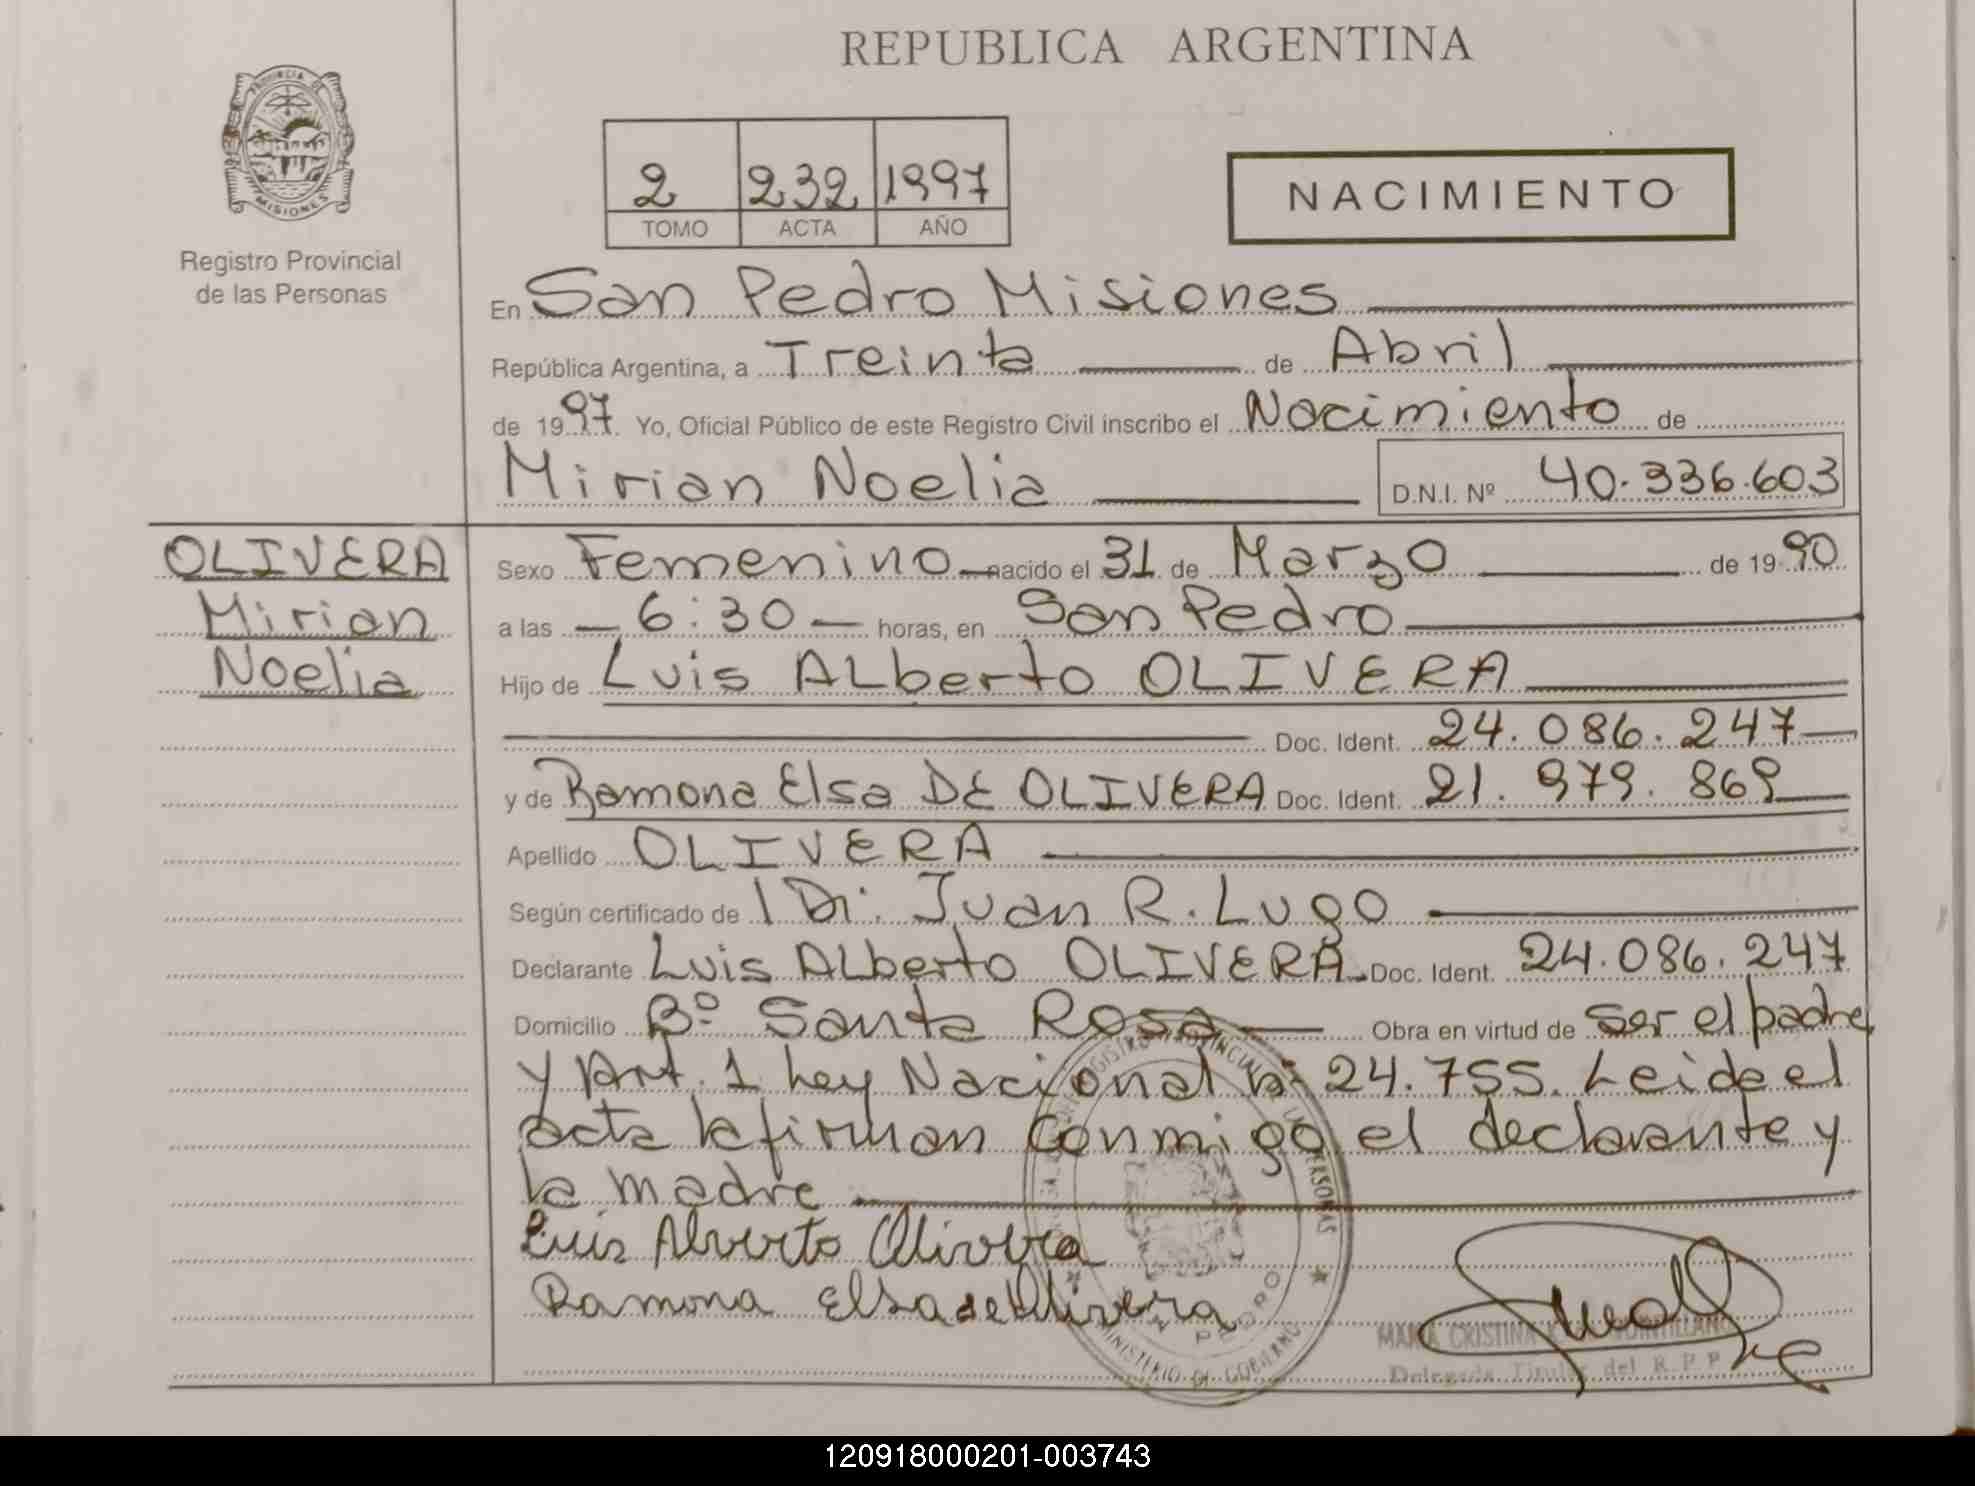 REPUBLICA ARGENTINA
PROVINCIA DE
MISIONES
Registro Provincial
de las Personas
2 232 1997
TOMO ACTA AÑO
NACIMIENTO
En San Pedro Misiones
República Argentina, a Treinta de Abril
de 1997 Yo, Oficial Público de este Registro Civil inscribo el Nacimiento de
Mirian Noelia D.N.I. Nº 40.336.603
OLIVERA
Mirian
Noelia
Sexo Femenino nacido el 31 de Marzo de 1990
a las 6:30 horas, en San Pedro
Hijo de Luis ALberto OLIVERA
Doc. Ident. 24.086.247
y de Ramona Elsa DE OLIVERA Doc. Ident. 21.979.869
Apellido OLIVERA
Según certificado de Juan R. Lugo
Declarante Luis ALberto OLIVERA Doc. Ident. 24.086.247
Domicilio Bº Santa Rosa Obra en virtud de ser el padre
y Art. 1 Ley Nacional nº 24.755. Leida el
acta la firman conmigo el declarante y
la madre
Luis Alverto Olivera
Ramona Elsa de Olivera
MINISTERIO DE GOBIERNO
MARIA CRISTINA
Delegada Titular del R.P.P.
120918000201-003743